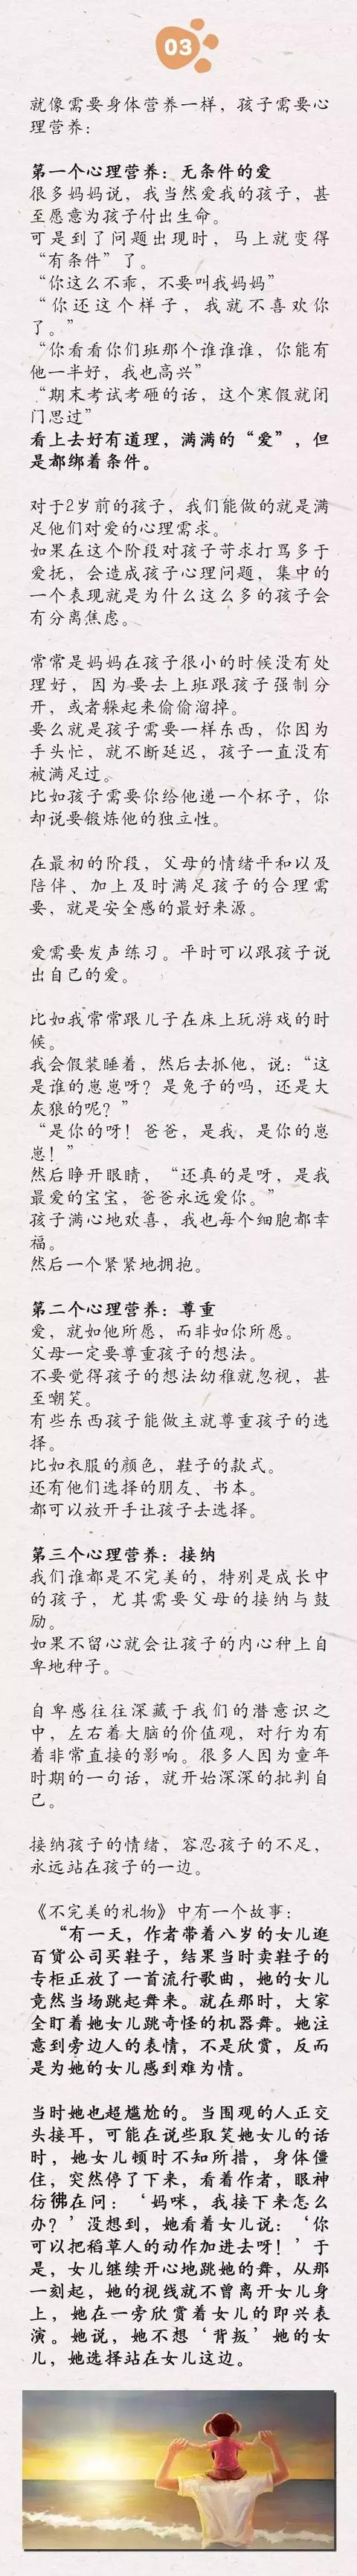 03
就像需要身体营养一样，孩子需要心
理营养：
第一个心理营养：无条件的爱
很多妈妈说，我当然爱我的孩子，甚
至愿意为孩子付出生命。
可是到了问题出现时，马上就变得
“有条件”了。
“你这么不乖，不要叫我妈妈”
“你还这个样子，我就不喜欢你
了。”
“你看看你们班那个谁谁谁，你能有
他一半好，我也高兴”
“期末考试考砸的话，这个寒假就闭
门思过”
看上去好有道理，满满的“爱”，但
是都绑着条件。
对于2岁前的孩子，我们能做的就是满
足他们对爱的心理需求。
如果在这个阶段对孩子苛求打骂多于
爱抚，会造成孩子心理问题，集中的
一个表现就是为什么这么多的孩子会
有分离焦虑。
常常是妈妈在孩子很小的时候没有处
理好，因为要去上班跟孩子强制分
开，或者躲起来偷偷溜掉。
要么就是孩子需要一样东西，你因为
手头忙，就不断延迟，孩子一直没有
被满足过。
比如孩子需要你给他递一个杯子，你
却说要锻炼他的独立性。
在最初的阶段，父母的情绪平和以及
陪伴、加上及时满足孩子的合理需
要，就是安全感的最好来源。
爱需要发声练习。平时可以跟孩子说
出自己的爱。
比如我常常跟儿子在床上玩游戏的时
候。
我会假装睡着，然后去抓他，说：“这
是谁的崽崽呀？是兔子的吗，还是大
灰狼的呢？”
“是你的呀！爸爸，是我，是你的崽
崽！”
然后睁开眼睛，“还真的是呀，是我
最爱的宝宝，爸爸永远爱你。”
孩子满心地欢喜，我也每个细胞都幸
福。
然后一个紧紧地拥抱。
第二个心理营养：尊重
爱，就如他所愿，而非如你所愿。
父母一定要尊重孩子的想法。
不要觉得孩子的想法幼稚就忽视，甚
至嘲笑。
有些东西孩子能做主就尊重孩子的选
择。
比如衣服的颜色，鞋子的款式。
还有他们选择的朋友、书本。
都可以放开手让孩子去选择。
第三个心理营养：接纳
我们谁都是不完美的，特别是成长中
的孩子，尤其需要父母的接纳与鼓
励。
如果不留心就会让孩子的内心种上自
卑地种子。
自卑感往往深藏于我们的潜意识之
中，左右着大脑的价值观，对行为有
着非常直接的影响。很多人因为童年
时期的一句话，就开始深深的批判自
己。
接纳孩子的情绪，容忍孩子的不足，
永远站在孩子的一边。
《不完美的礼物》中有一个故事：
“有一天，作者带着八岁的女儿逛
百货公司买鞋子，结果当时卖鞋子的
专柜正放了一首流行歌曲，她的女儿
竟然当场跳起舞来。就在那时，大家
全盯着她女儿跳奇怪的机器舞。她注
意到旁边人的表情，不是欣赏，反而
是为她的女儿感到难为情。
当时她也超尴尬的。当围观的人正交
头接耳，可能在说些取笑她女儿的话
时，她女儿顿时不知所措，身体僵
住，突然停了下来，看着作者，眼神
彷彿在问：‘妈咪，我接下来怎么
办？’没想到，她看着女儿说：‘你
可以把稻草人的动作加进去呀！’于
是，女儿继续开心地跳她的舞，从那
一刻起，她的视线就不曾离开女儿身
上，她在一旁欣赏着女儿的即兴表
演。她说，她不想‘背叛’她的女
儿，她选择站在女儿这边。